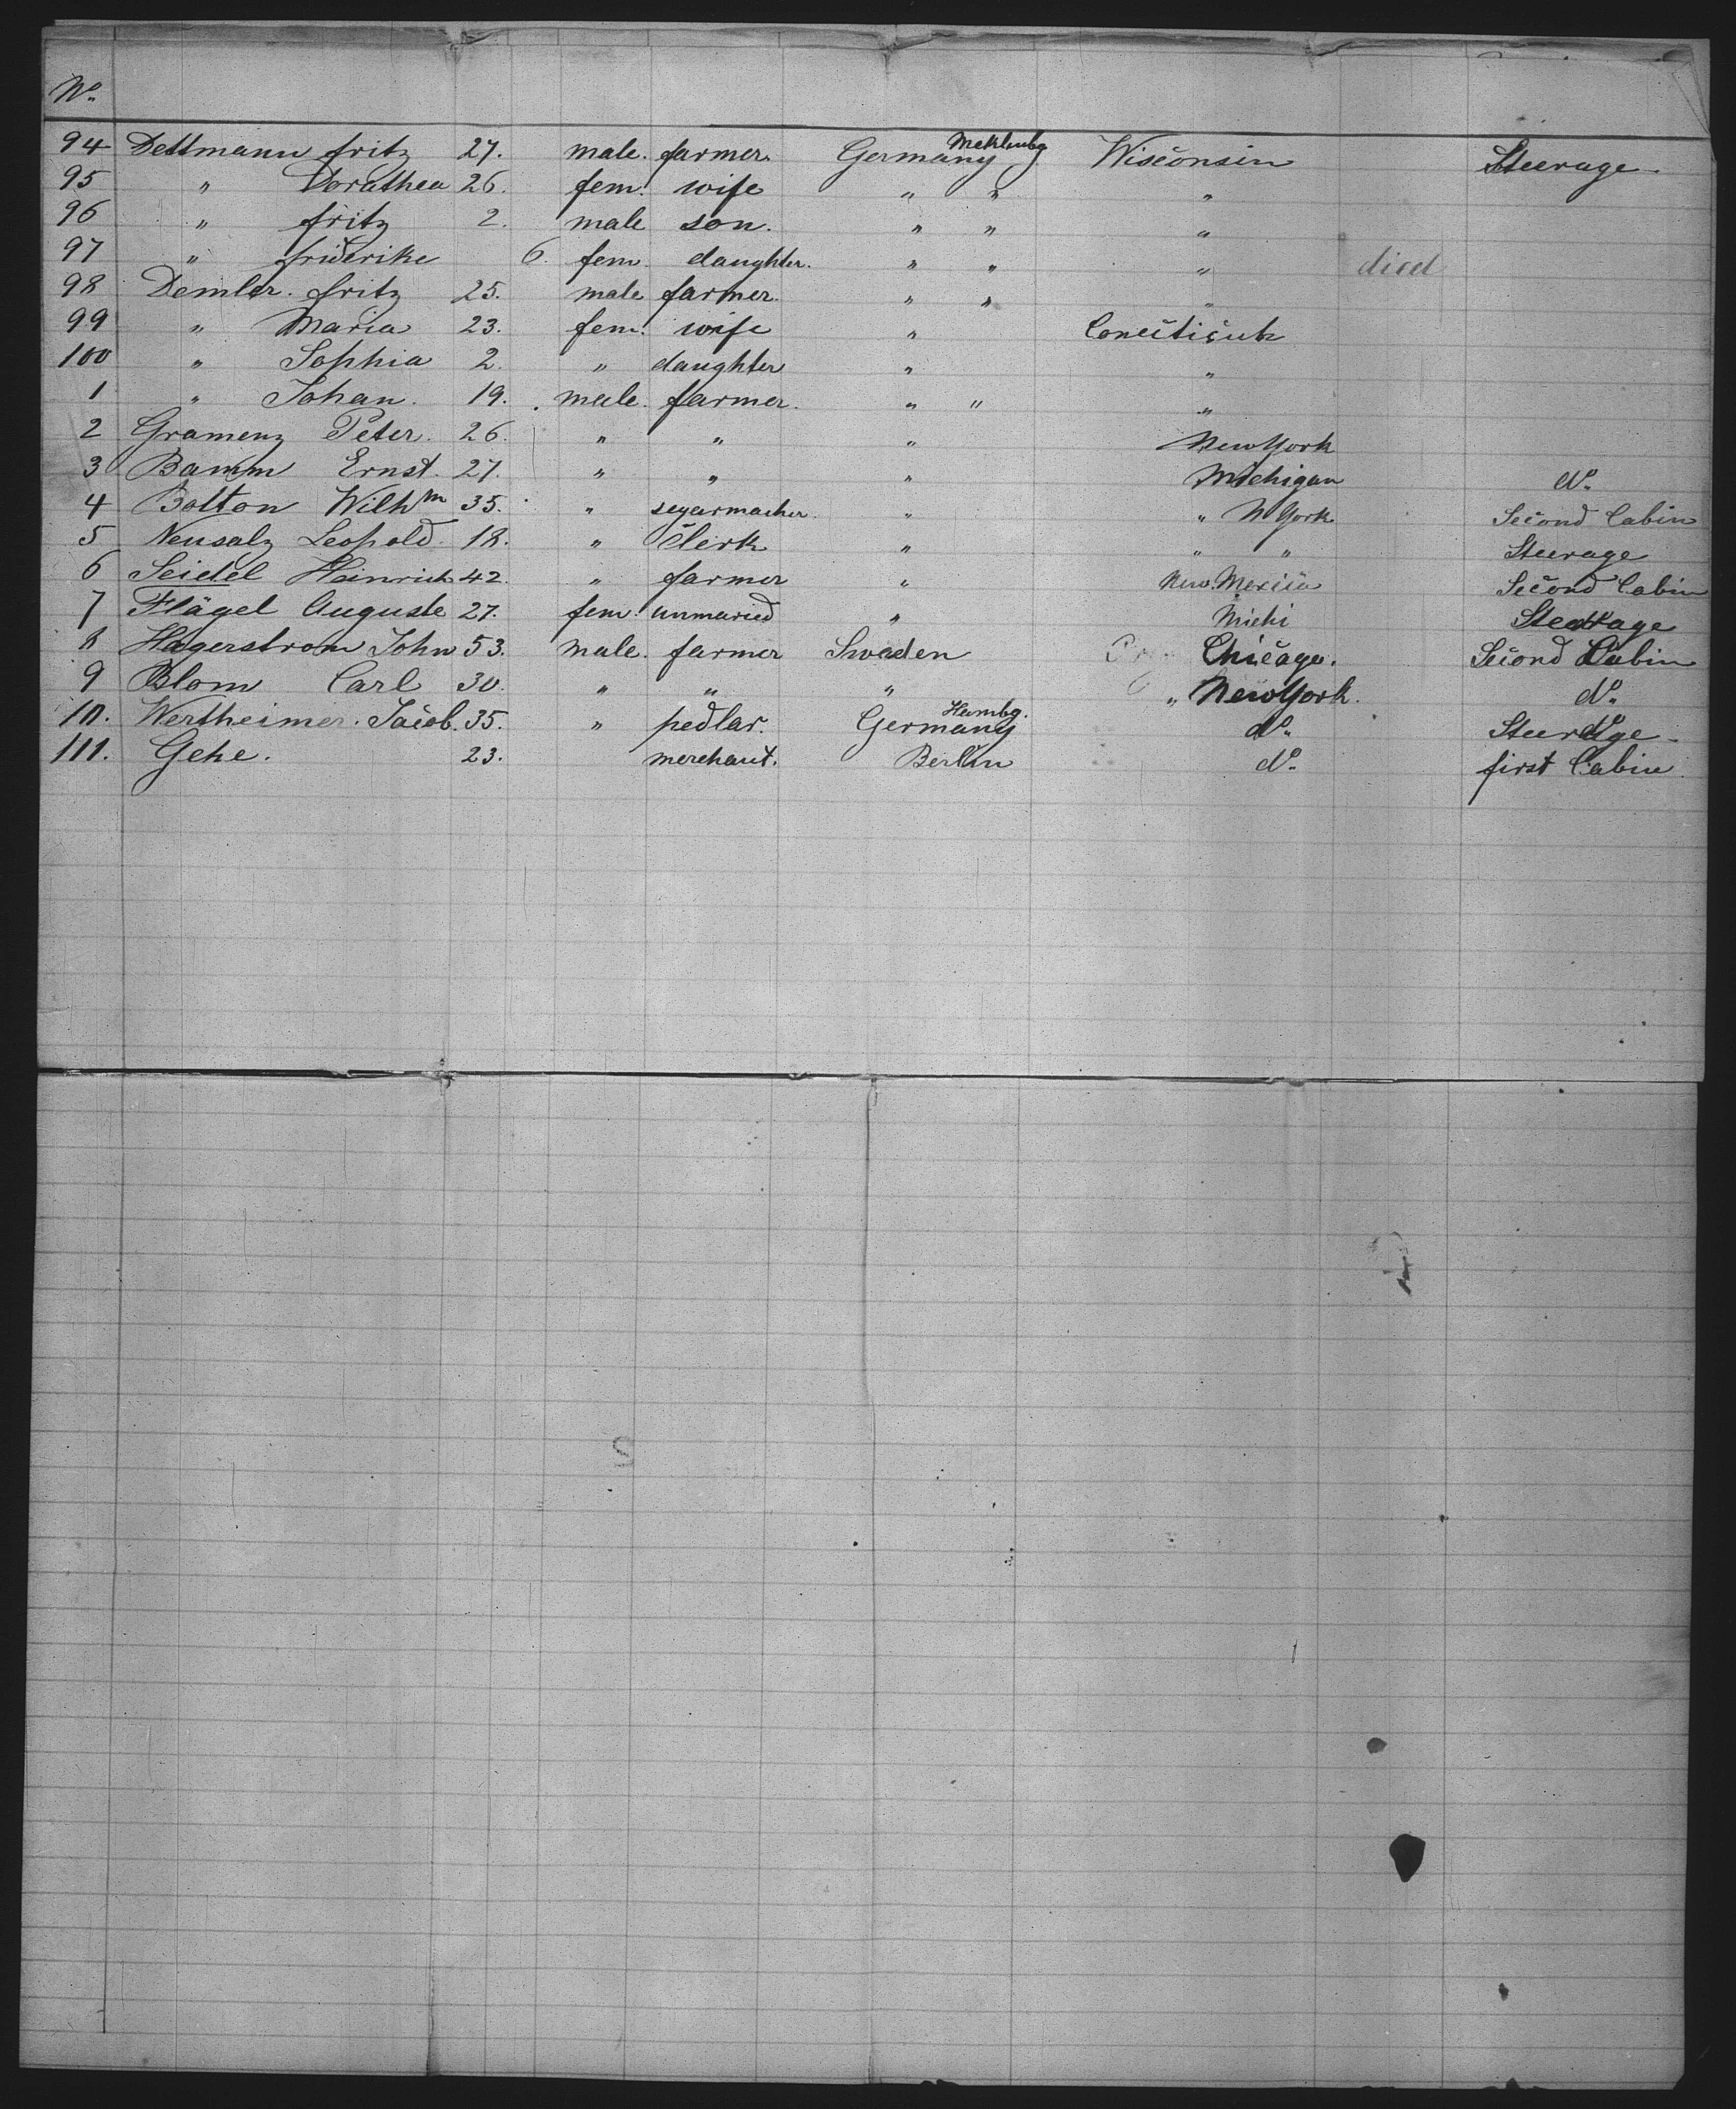 No.
94 Dettmann fritz 27. male. farmer. Germany Meklenbg Wisconsin Steerage
95 " Dorathea 26. fem. wife " " "
96 " fritz 2. male son. " " "
97 " friderike 6. fem. daughter. " " " died
98 Demler. fritz 25. male farmer. " " "
99 " Maria 23. fem. wife " Conecticutt
100 " Sophia 2. " daughter " "
1 " Johan. 19. male. farmer. " " "
2 Gramenz Peter. 26. " " " New York
3 Bamm Ernst. 27. " " " Michigan do.
4 Bolton Wilhm 35. " segarmacher. " " N York Second Cabin
5 Neusalz Leopold. 18. " Clerk " " " Steerage
6 Seidel Heinrich 42. " farmer " New. Mexico Second Cabin
7 Flägel Auguste 27. fem. unmaried " Michi Steerage
8 Hagerstrom John 53. male. farmer Swaden Chicago. Second Cabin
9 Blom Carl 30. " " " " New York. do.
10. Wertheimer. Jacob. 35. " pedlar. Germany Hambg. do. Steerage
111. Gehe. 23. merchant. Berlin do. first Cabin